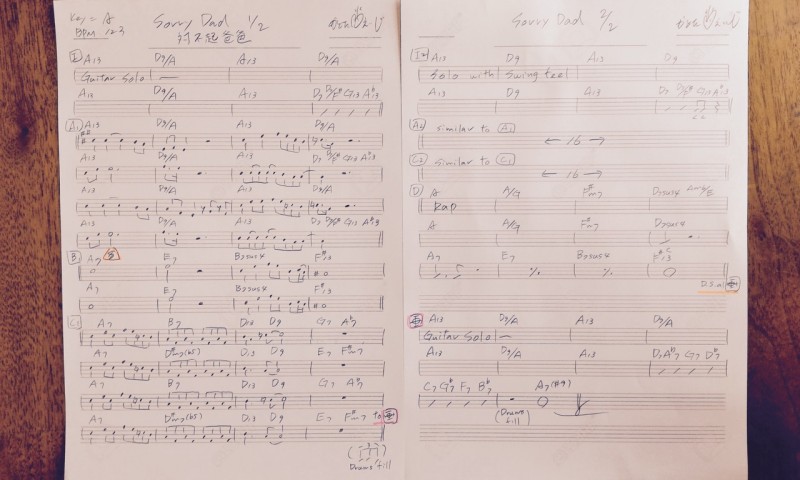 Key = A
BPM 123
Sorry Dad 1/2
対不起爸爸
I A13 D9/A A13 D9/A
Guitar Solo
A13 D9/A A13
A1 A13 D9/A A13 D9/A
A13 D9/A A13
A13 D9/A A13 D9/A
A13 D9/A A13
B A7 E7 B7sus4 F#13
A7 E7 B7sus4 F#13
C1 A7 B7 D13 D9 G7 Ab7
A7 D#m7(b5) D13 D9 E7 F#m7
A7 B7 D13 D9 G7 Ab7
A7 D#m7(b5) D13 D9 E7 F#m7 to
3
Drums fill
Sorry Dad 2/2
I2 A13 D9 A13 D9
Solo with Swing feel
A13 D9 A13
A2 similar to A1 ← 16 →
C2 similar to C1 ← 16 →
D A A/G F#m7 D7sus4
Rap
A A/G F#m7 D7sus4
A7 E7 B7sus4 F#13
D.S. al
A13 D9/A A13 D9/A
Guitar Solo
A13 D9/A A13
C7 Gb F7 Bb A7(#9)
(Drums fill)